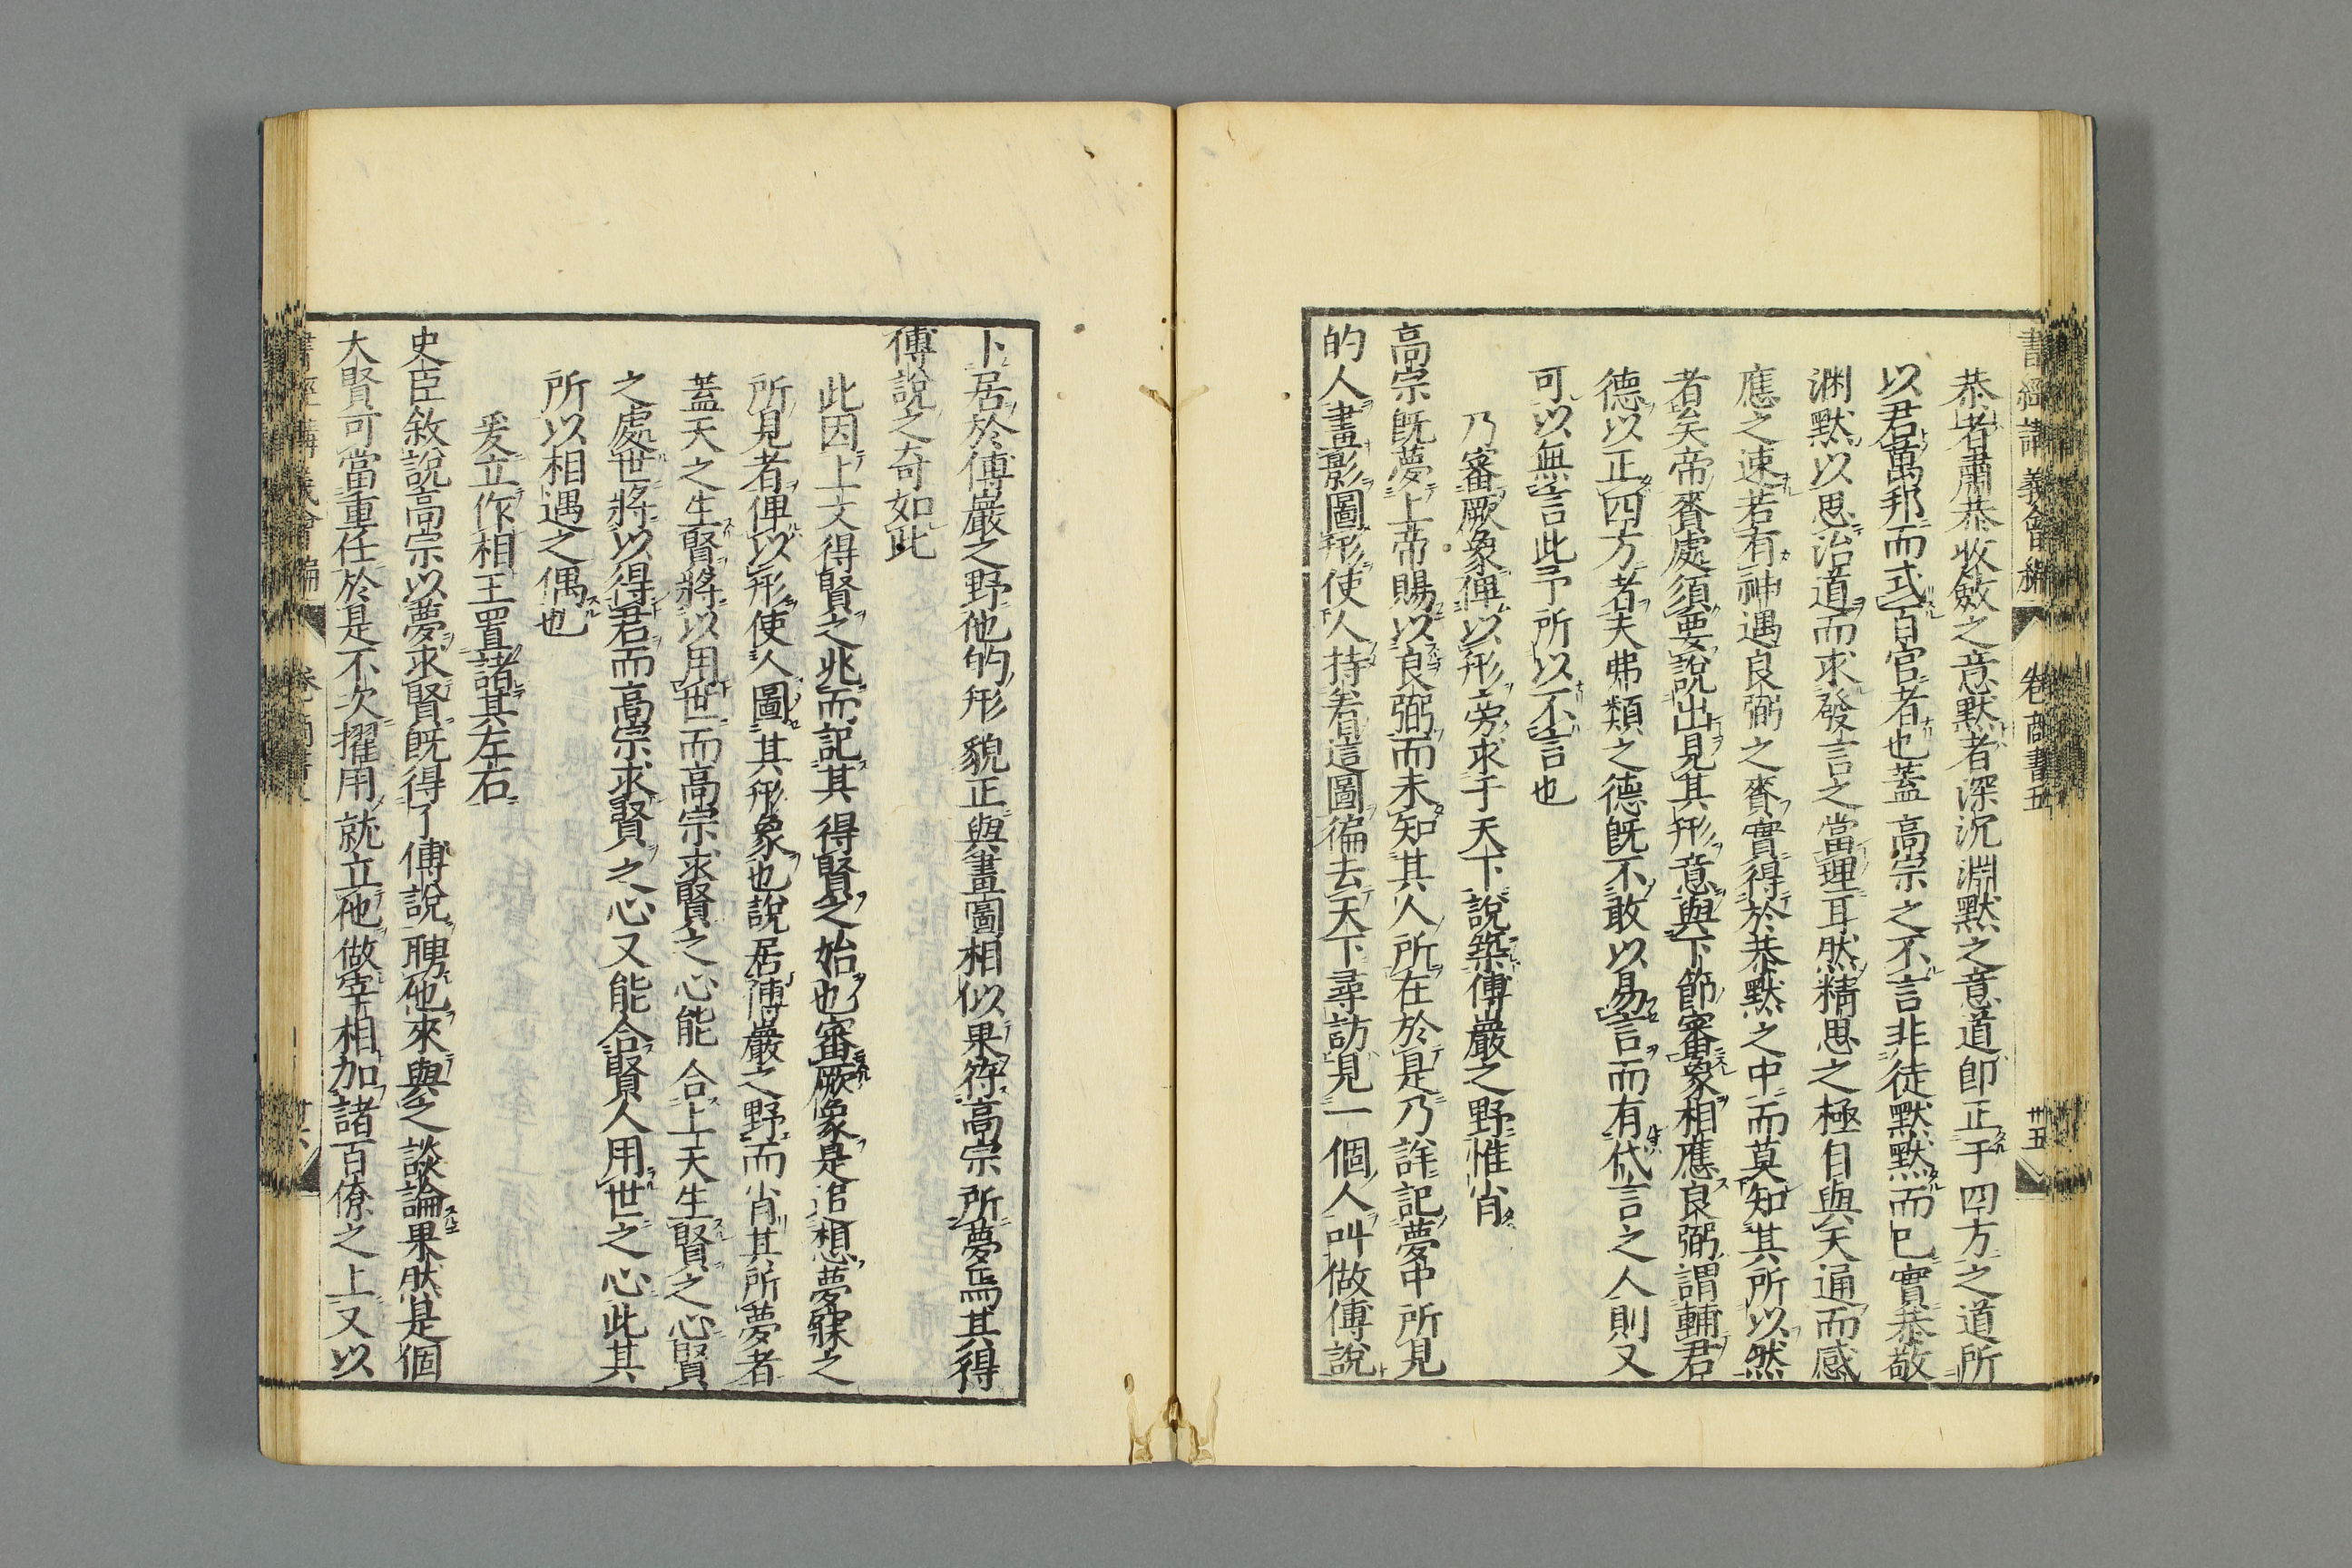 書經講義會編 卷 商書五 卅五
恭者肅恭收斂之意默者深沉淵默之意道即正于四方之道所
以君萬邦而式百官者也蓋高宗之不言非徒默默而已實恭敬
渊默以思治道而求發言之當理耳然精思之極自與天通而感
應之速若有神遇良弼之賚實得於恭默之中而莫知其所以然
者矣帝賚處須要說出見其形意與下節審象相應良弼謂輔君
德以正四方者夫弗類之德既不敢以易言而有代言之人則又
可以無言此予所以不言也
乃審厥象俾以形旁求于天下說築傅巖之野惟肖
高宗既夢上帝賜以良弼而未知其人所在於是乃詳記夢中所見
的人畫影圖形使人持着這圖徧去天下尋訪見一個人叫做傅說
卜居於傅巖之野他的形貌正與畫圖相似果符高宗所夢焉其得
傅說之奇如此
此因上文得賢之兆而記其得賢之始也審厥像是追想夢寐之
所見者俾以形使人圖其形象也說居傅巖之野而肖其所夢者
蓋天之生賢將以用世而高宗求賢之心能合上天生賢之心賢
之處世將以得君而高宗求賢之心又能合賢人用世之心此其
所以相遇之偶也
爰立作相王置諸其左右
史臣敘說高宗以夢求賢既得了傅說聘他來與之談論果然是個
大賢可當重任於是不次擢用就立他做宰相加諸百僚之上又以
書經講義會編 卷 商書